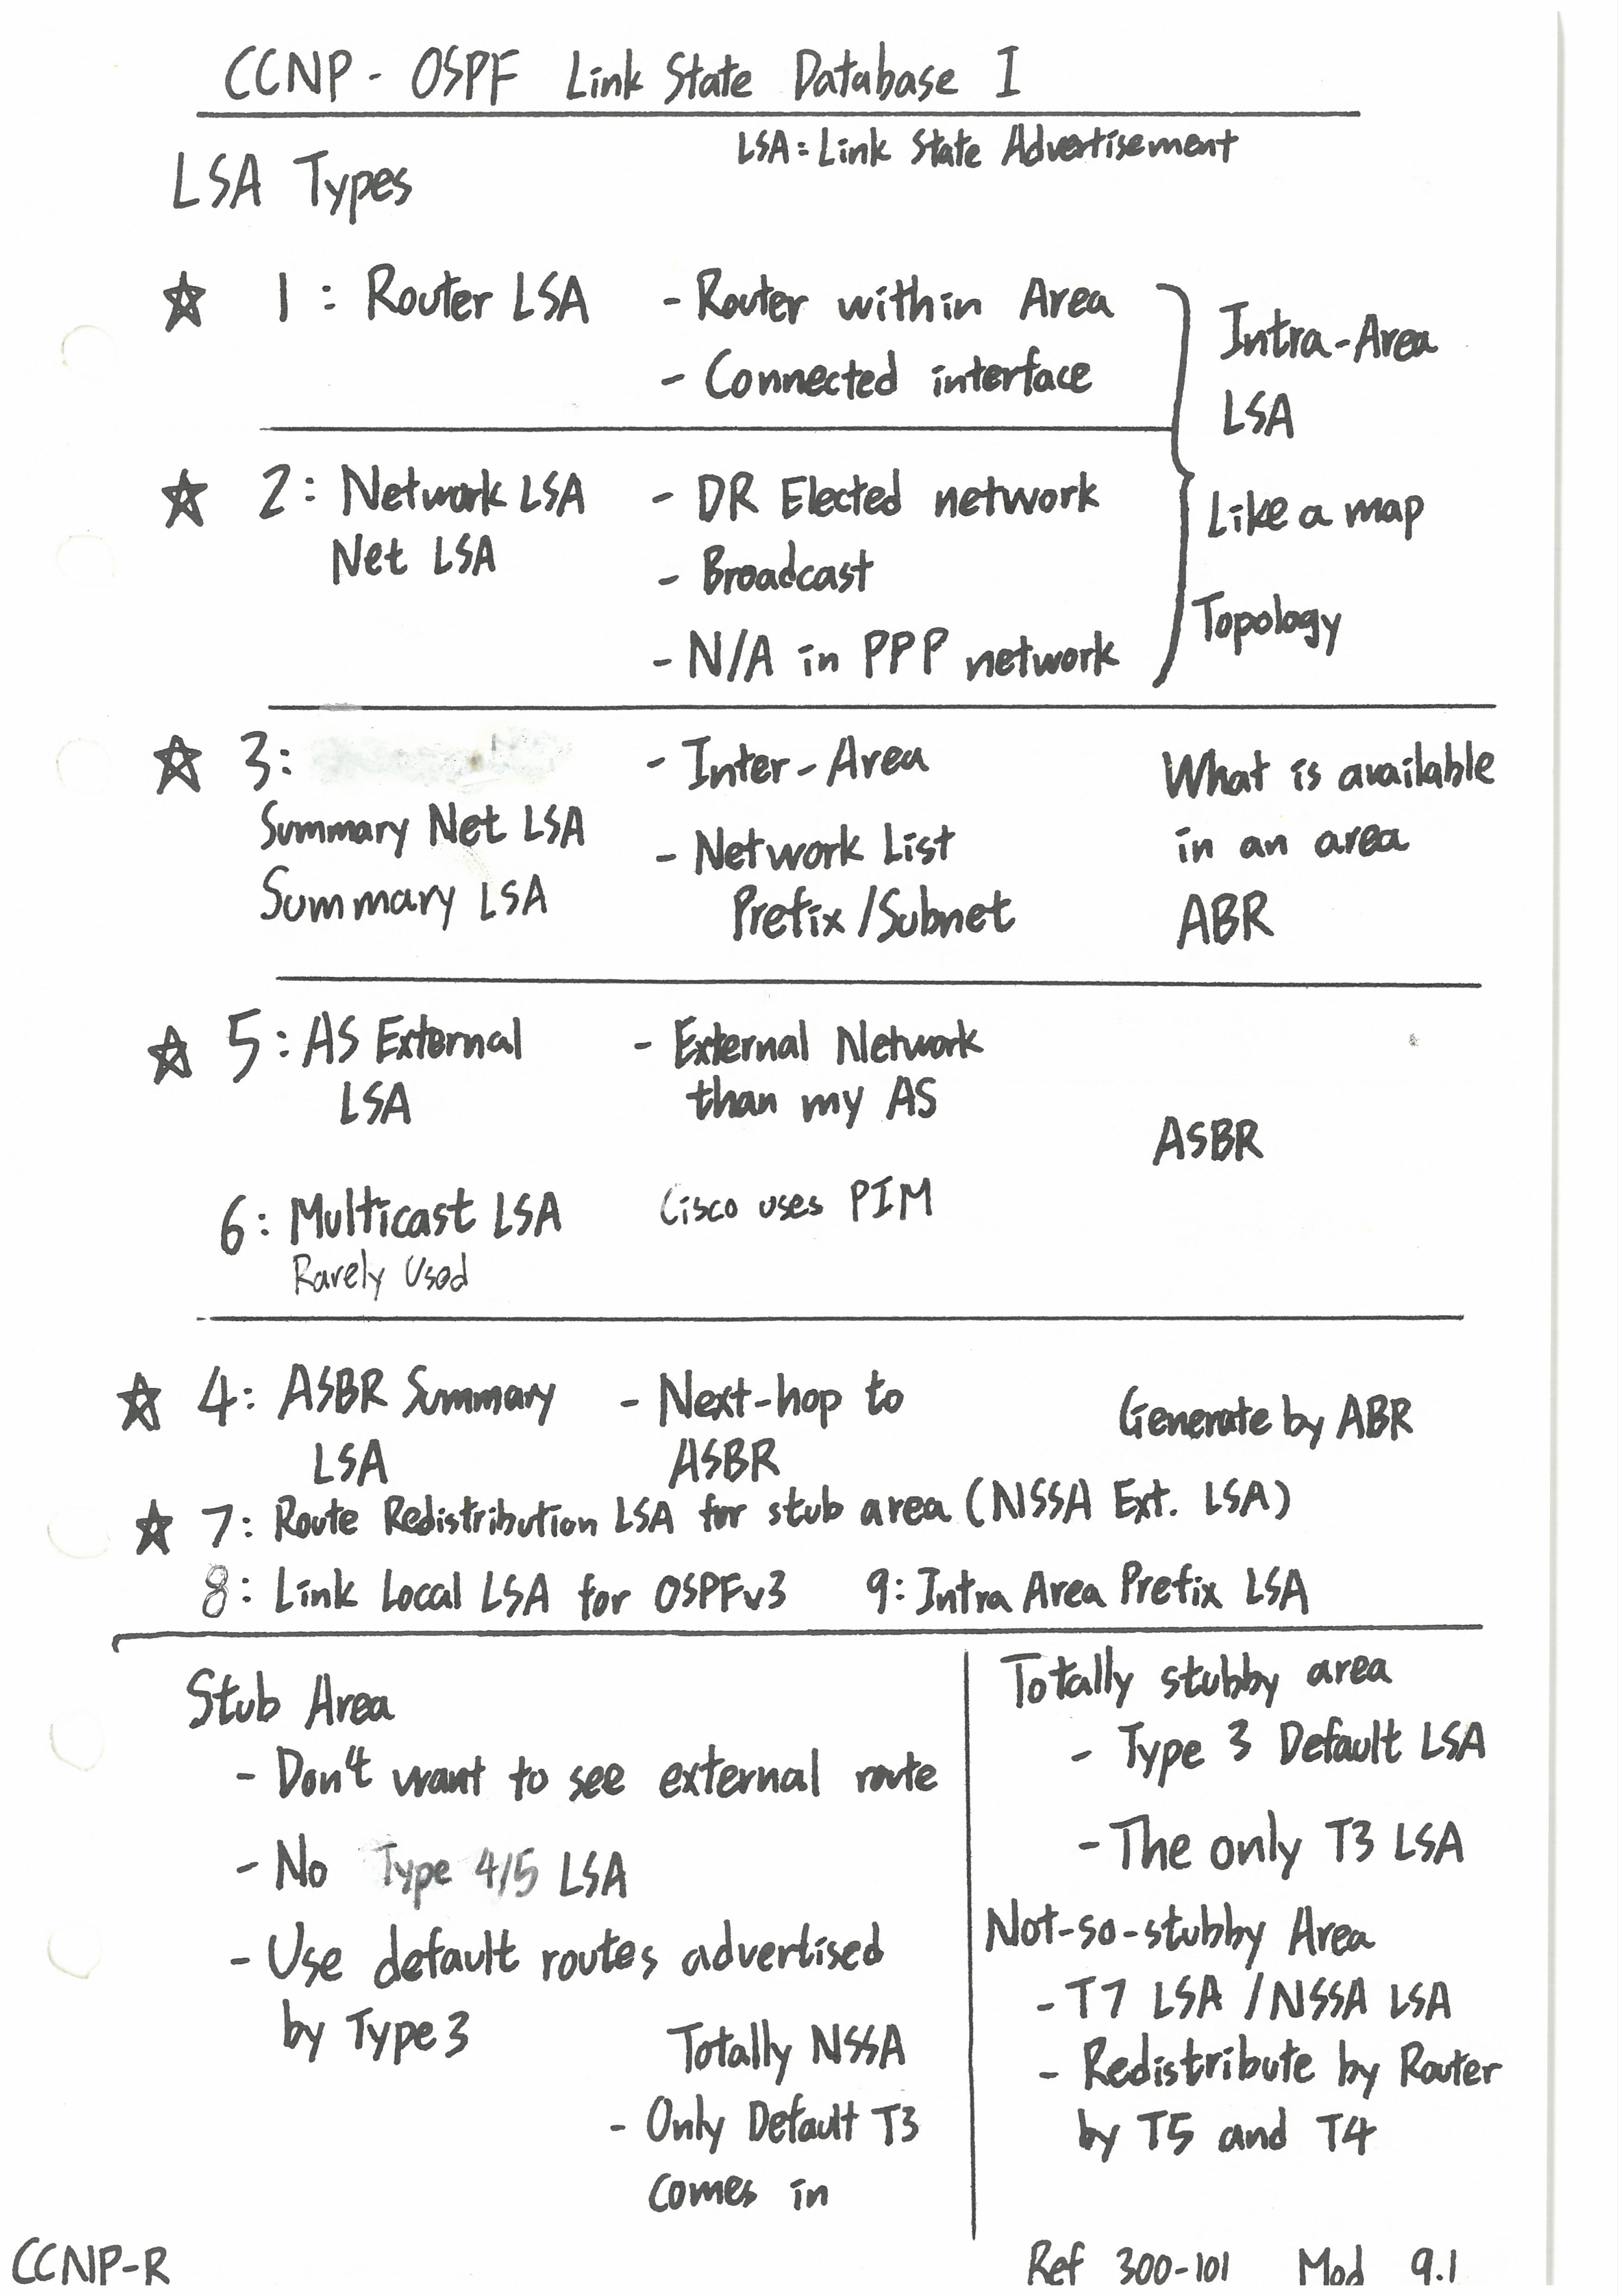 CCNP - OSPF Link State Database I
LSA = Link State Advertisement
LSA Types
☆ 1 : Router LSA - Router within Area
- Connected interface
Intra-Area
LSA
☆ 2 : Network LSA - DR Elected network
Net LSA - Broadcast
- N/A in PPP network
Like a map
Topology
☆ 3 : - Inter-Area
Summary Net LSA - Network List
Summary LSA Prefix / Subnet
What is available
in an area
ABR
☆ 5 : AS External - External Network
LSA than my AS
ASBR
6 : Multicast LSA Cisco uses PIM
Rarely Used
☆ 4 : ASBR Summary - Next-hop to Generate by ABR
LSA ASBR
☆ 7 : Route Redistribution LSA for stub area (NSSA Ext. LSA)
8 : Link Local LSA for OSPFv3 9 : Intra Area Prefix LSA
Stub Area
- Don't want to see external route
- No Type 4/5 LSA
- Use default routes advertised
by Type 3
Totally NSSA
- Only Default T3
comes in
Totally stubby area
- Type 3 Default LSA
- The only T3 LSA
Not-so-stubby Area
- T7 LSA / NSSA LSA
- Redistribute by Router
by T5 and T4
CCNP-R Ref 300-101 Mod 9.1